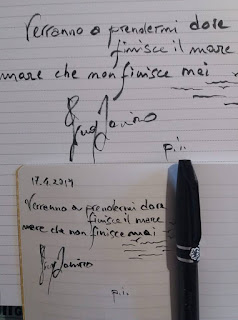 Verranno a prendermi dove
finisce il mare
mare che non finisce mai
p.i.
17.4.2014
Verranno a prendermi dove
finisce il mare
mare che non finisce mai
p.i.